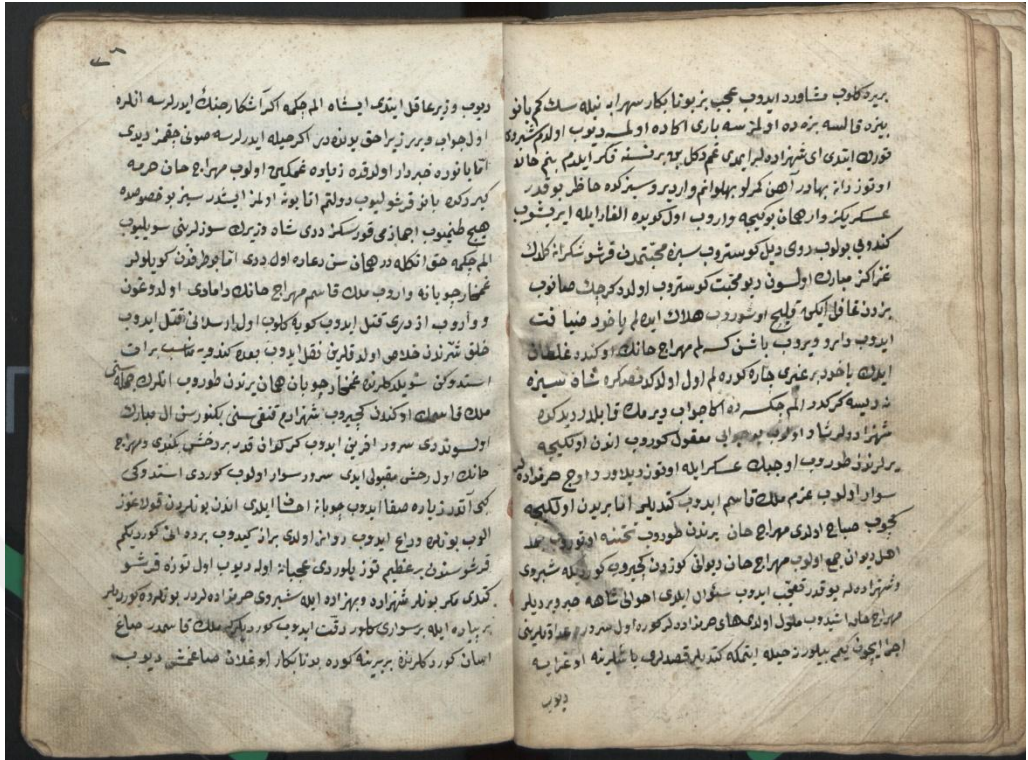 بر یرده کلوب مشاوره ایدوب عجب بز بو نابکار سهرابه نیله سك کم بانو
بیزه قالسه بزه ده اولمز سه باری اکا ده اولمسه دیوب اولدم شیروی
تورك ایتدی ای شهزاده لر ایمدی غم دکل بن بر نسنه فکر ایلدم بنم حالا
اوتوز دانه بهادر آهن کمرلو پهلوانم واردر و سیزکده حاظر بو قدر
عسکریکز وار همان بوکیجه واروب اول کوپده الغار ایله ایریشوب
کندویی بولوب روی دیل کوستروب سیزه محبتمدن قرشو شکرانه کلدك
غزاکز مبارك اولسون دیو محبت کوستروب اولدە کرچك صانوب
بزدن غافل ایکن قلیچ اوشوروب هلاك ایده لم یاخود ضیافت
ایدوب دارو ویروب باشن کسه لم مهراج حانك اوکنده غلطان
ایدك یاخود بر غیری چاره کوره لم اول اولدکدن صکره شاه سیزه
نه دیسه کرکدر الم چکسه ده اکا جواب ویرمك قابلدر دیدکده
شهزاده لر شاد اولوب بو جوابی معقول کوروب اندن اولکیجه
یرلرندن طوروب اوچ بیك عسکر ایله اوتوز دیلاور و اوچ حرمزاده لر
سوار اولوب عزم ملك قاسم ایدوب کتدیلر اما بریدن اولکیجه
کچوب صباح اولدی مهراج حان یرندن طوروب تختنه اوتوروب جمله
اهل دیوان جمع اولوب مهراج حان دیوانی کوزدن کچیروب کوردیله شیروی
و شهزاده لر بوقدر تعجب ایدوب سئوال ایلدی احوالی شاهه خبر ویردیلر
مهراج حان اشیدوب ملول اولدی های حرمزاده لر کوره اول سرور عداوتلرینی
اجرا ایچون کیم بیلور نه حیله ایتمکه کتدیلر قصدلری باشلرینه اوغرایسه
دیوب
دیوب وزیر عاقل ایتدی ای شاه الم چکمه اکر آشکار جنك ایدرلرسه انلره
اول جواب ویرر زیرا حق یوننده در اکر حیله ایدرلرسه صوکی چقمز دیدی
اما بانوده خبردار اولدقده زیاده غمکین اولوب مهراج حان حرمه
کیردکده بانو قرشولیوب دولتم اتا بونه اولمز ایشدر سیز بو خصوصده
هیچ طنمیوب اجمازمی قورسکز ددی شاه وزیرك سوزلرینی سویلیوب
الم چکمه حق انکله در همان سن دعاده اول ددی اما بو طرفدن کویلولر
غمخار چوبانه واروب ملك قاسم مهراج حانك دامادی اولدوغون
و واروب اژدری قتل ایدوب کویه کلوب اول ارسلانی قتل ایدوب
خلق شرندن خلاص اولدقلرین نقل ایدوب بعده کندویه مناسب برات
استدوکن سویلدکلرنده غمخار چوبان همان یرندن طوروب انلرك جمله سنی
ملك قاسمك اوکندن کچیروب شهزادم قنقیسنی بکنورسن ال مبارك
اولسون ددی سرور افرین ایدوب کمرکدان قدر بر رخشی بکندی و مهراج
حانك اول رخش مقبولی ایدی سرور سوار اولوب کوردی استدوکی
کبی آتدر زیاده صفا ایدوب چوبانه احسان ایلدی اندن بونلردن قولاغوز
الوب بونلره وداع ایدوب روانه اولدی براز کیدوب برده انی کوردیکم
قرشوسندن بر عظیم توز پلوردی عجبا نه اوله دیوب اول توزه قرشو
کتدی مکر بونلر شهزاده و بهزاده ایله شیروی حرمزاده لردر بونلرده کوردیلر
بر پیاده ایله بر سواری کلور دقت ایدوب کوردیلرکه ملك قاسمدر صاغ
اسان کوردکلرنده بربرینه کوره بو نابکار اوغلان صاغمش دیوب